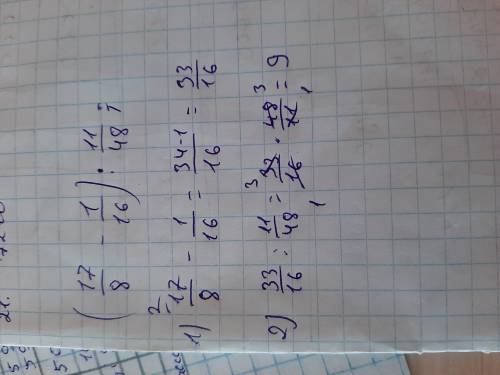 21.
(17/8 - 1/16) : 11/48 ;
1) ²17/8 - 1/16 = 34-1/16 = 33/16
2) 33/16 : 11/48 = ³33/16₁ · 48³/11₁ = 9